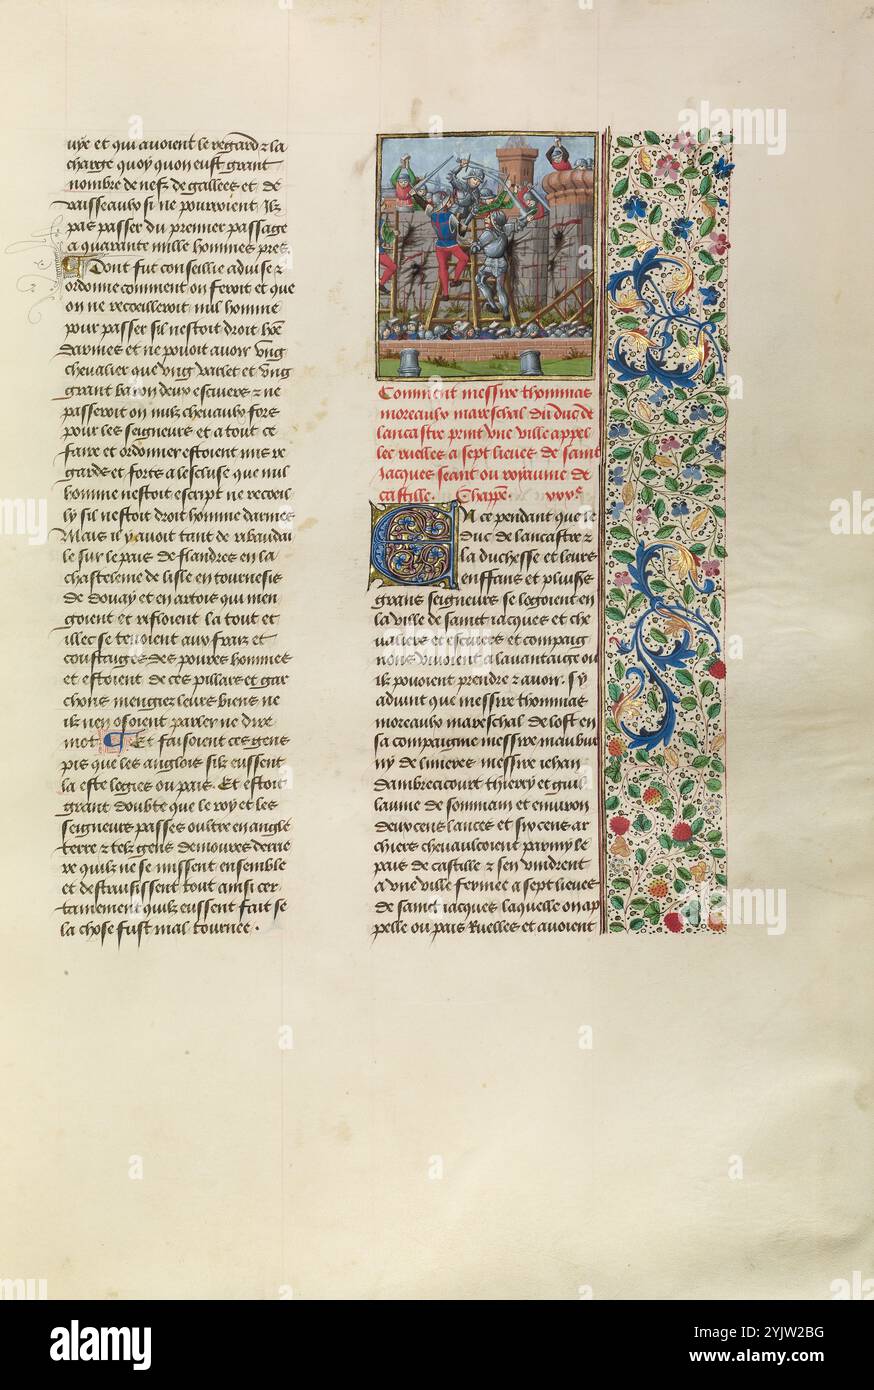 uye et qui avoient le regard z la
charge quoy quon eust grant
nombre de nefz de gallees et de
vaisseaulx si ne pouroient ilz
pas passer du premier passage
a quarante mille hommes pres
Dont fut conseillie advise z
ordonne comment on feroit et que
on ne recoeilleroit nul homme
pour passer sil nestoit droit hoe
darmes et ne povoit avoir ung
chevalier que ung varlet et ung
grant baron deux escuiers z ne
passeroit on nulz chevaulx fors
pour les seigneurs et a tout ce
faire et ordonner estoient mis re
gards et fors a lescluse que nul
homme nestoit escript ne recoeil
ly sil nestoit droit homme darmes
Mais il y avoit tant de ribaudai
le sur le pais de flandres en la
chastelenie de lisle en tournesis
de douay et en artois qui men
goient et rifloient la tout et
illec se tenoient aux fraiz et
coustaiges des povres hommes
et estoient de ces pillars et gar
chons mengiez leurs biens ne
ilz nen osoient parler ne dire
mot. Et faisoient ces gens
pis que les anglois silz eussent
la este logies ou pais. Et estoit
grant doubte que le roy et les
seigneurs passes oultre en angle
terre z telz gens demoures derrie
re quilz ne se missent ensemble
et destruisissent tout ainsi cer
tainement quilz eussent fait se
la chose fust mal tournee.
Comment messire thommas
moreaulx mareschal du duc de
lancastre print une ville appel
lee ruelles a sept lieues de saint
Jacques seant ou royaume de
castille. Chappe. xxxe
En ce pendant que le
duc de lancastre z
la duchesse et leurs
enffans et pluises
grans seigneurs se logoient en
la ville de saint iacques et che
valiers et escuiers et compaig
nons vivoient a lavantaige ou
ilz povoient prendre z avoir. sy
advint que messire thommas
moreaulx mareschal de lost en
sa compaignie messire maubue
ny de linieres messire iehan
dambrecicourt thierry et guil
laume de sommain et environ
deux cens lances et six cens ar
chiers chevaulcoient parmy le
pais de castille z sen vindrent
a une ville fermee a sept lieues
de saint iacques laquelle on ap
pelle ou pais Ruelles et avoient
alamy
Image ID: 2YJW2BG
www.alamy.com